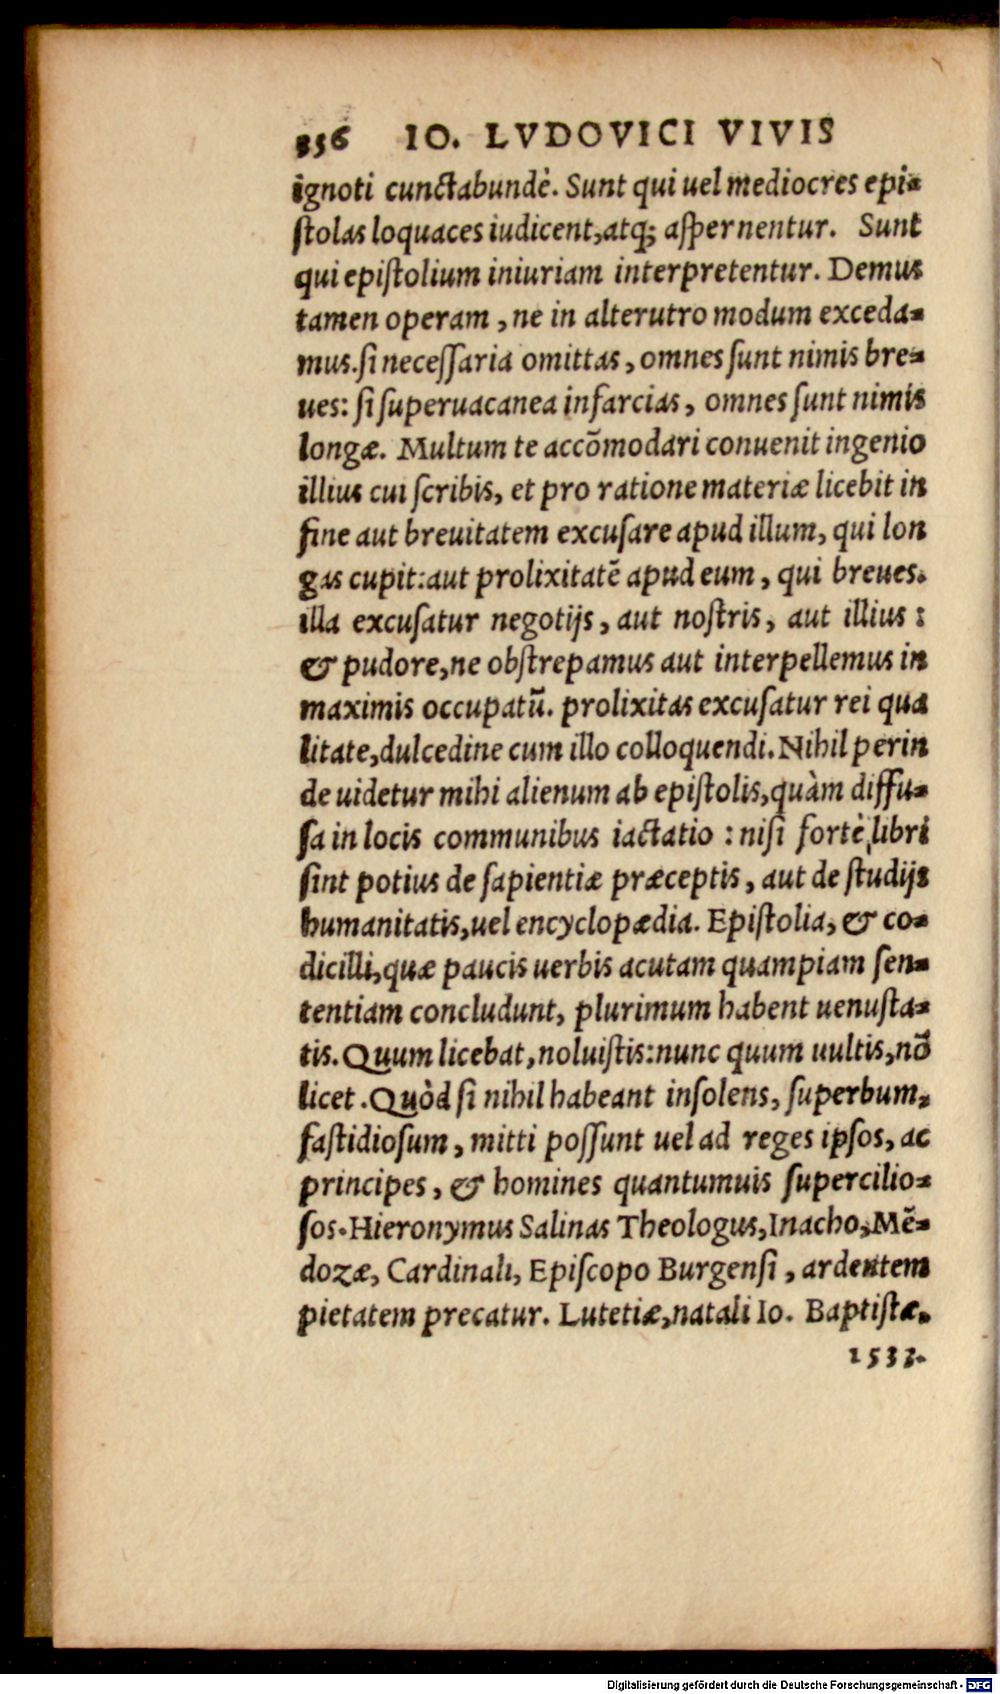 356 IO. LVDOVICI VIVIS
ignoti cunctabundè. Sunt qui uel mediocres epi-
stolas loquaces iudicent, atq; aspernentur. Sunt
qui epistolium iniuriam interpretentur. Demus
tamen operam, ne in alterutro modum exceda-
mus. si necessaria omittas, omnes sunt nimis bre-
ues: si superuacanea infarcias, omnes sunt nimis
longæ. Multum te accõmodari conuenit ingenio
illius cui scribis, et pro ratione materiæ licebit in
fine aut breuitatem excusare apud illum, qui lon
gas cupit: aut prolixitatē apud eum, qui breues.
illa excusatur negotijs, aut nostris, aut illius:
& pudore, ne obstrepamus aut interpellemus in
maximis occupatũ. prolixitas excusatur rei qua
litate, dulcedine cum illo colloquendi. Nihil perin
de uidetur mihi alienum ab epistolis, quàm diffu-
sa in locis communibus iactatio: nisi fortè libri
sint potius de sapientiæ præceptis, aut de studijs
humanitatis, uel encyclopædia. Epistolia, & co-
dicilli, quæ paucis uerbis acutam quampiam sen-
tentiam concludunt, plurimum habent uenusta-
tis. Quum licebat, noluistis: nunc quum uultis, nõ
licet. Quòd si nihil habeant insolens, superbum,
fastidiosum, mitti possunt uel ad reges ipsos, ac
principes, & homines quantumuis supercilio-
sos. Hieronymus Salinas Theologus, Inacho, Mē-
dozæ, Cardinali, Episcopo Burgensi, ardentem
pietatem precatur. Lutetiæ, natali Io. Baptistæ.
1533.
Digitalisierung gefördert durch die Deutsche Forschungsgemeinschaft - DFG